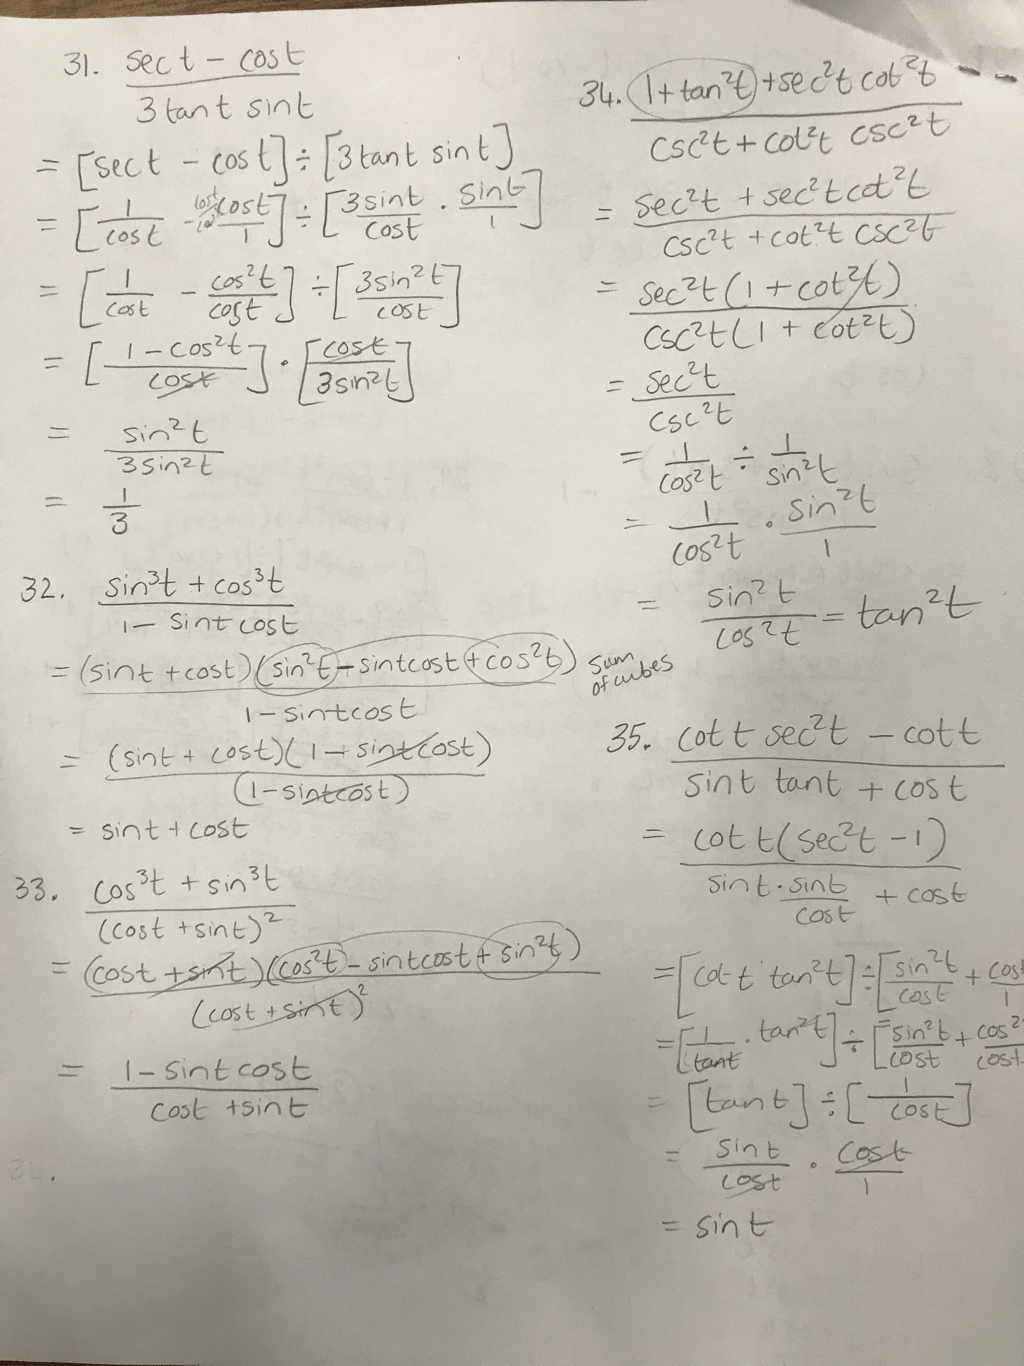 31. sec t - cos t
3 tan t sin t
= [sec t - cos t] ÷ [3 tan t sin t]
= [1/cos t - cos t/1] ÷ [3 sin t/cos t · sin t/1]
= [1/cos t - cos²t/cos t] ÷ [3 sin²t/cos t]
= [1 - cos²t/cos t] · [cos t/3 sin²t]
= sin²t/3 sin²t
= 1/3
32. sin³t + cos³t
1 - sin t cos t
= (sin t + cos t)(sin²t - sin t cos t + cos²t) sum of cubes
1 - sin t cos t
= (sin t + cos t)(1 - sin t cos t)
(1 - sin t cos t)
= sin t + cos t
33. cos³t + sin³t
(cos t + sin t)²
= (cos t + sin t)(cos²t - sin t cos t + sin²t)
(cos t + sin t)²
= 1 - sin t cos t
cos t + sin t
34.
34. 1 + tan²t + sec²t cot²t
csc²t + cot²t csc²t
= sec²t + sec²t cot²t
csc²t + cot²t csc²t
= sec²t (1 + cot²t)
csc²t (1 + cot²t)
= sec²t
csc²t
= 1/cos²t ÷ 1/sin²t
= 1/cos²t · sin²t/1
= sin²t/cos²t = tan²t
35. cot t sec²t - cot t
sin t tan t + cos t
= cot t (sec²t - 1)
sin t · sin t/cos t + cos t
= [cot t · tan²t] ÷ [sin²t/cos t + cos t/1
= [1/tan t · tan²t] ÷ [sin²t/cos t + cos²/cos t
= [tan t] ÷ [1/cos t]
= sin t/cos t · cos t/1
= sin t